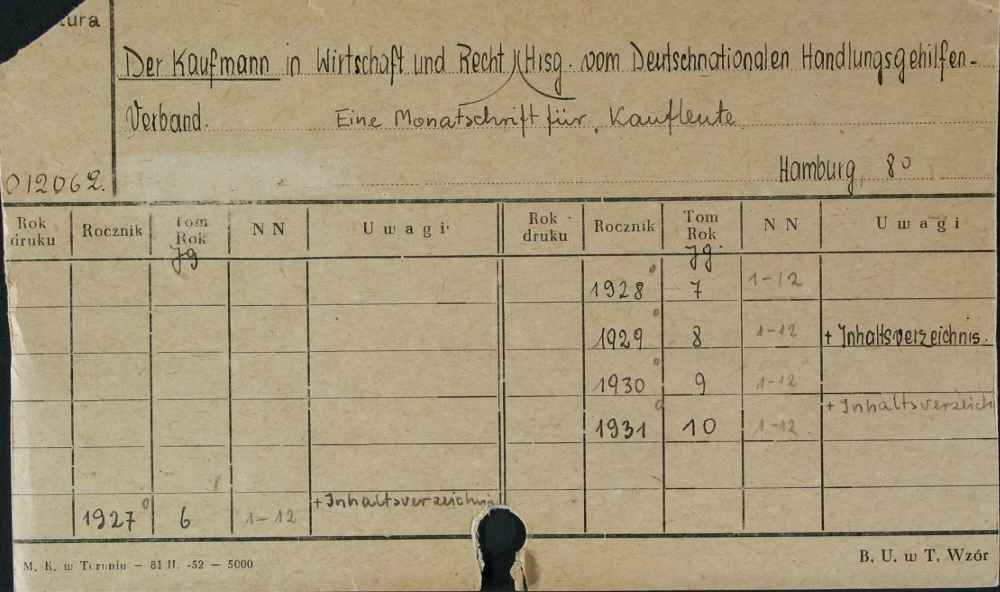 tura
Der Kaufmann in Wirtschaft und Recht Hrsg. vom Deutschnationalen Handlungsgehilfen-
Verband. Eine Monatschrift für Kaufleute
Hamburg, 8°
012062.
Rok druku Rocznik Tom Rok NN Uwagi Rok druku Rocznik Tom Rok NN Uwagi
Jg Jg.
1928° 7 1-12
1929° 8 1-12 + Inhaltsverzeichnis.
1930° 9 1-12
1931° 10 1-12 + Inhaltsverzeich
1927° 6 1-12 + Inhaltsverzeichnis
M. K. w Toruniu - 81 II. -52 - 5000
B. U. w T. Wzór